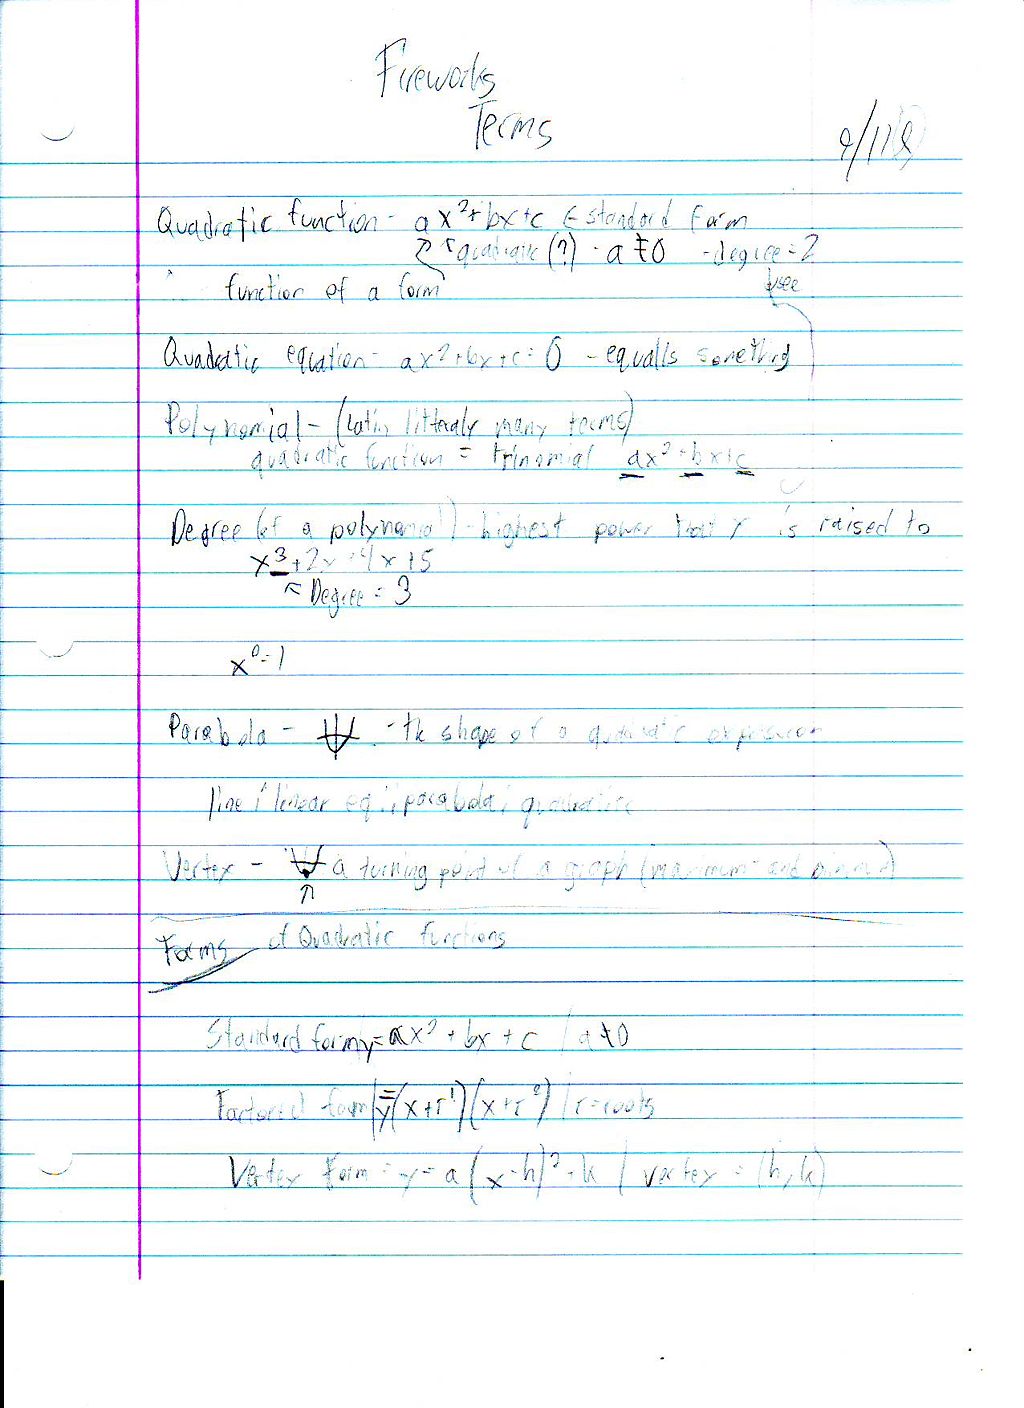 Fireworks
Terms
9/11
Quadratic function - ax²+bx+c ← standard form
↖quadratic (?) · a≠0 - degree = 2
function of a form
see
Quadratic equation - ax²+bx+c=0 - equalls something
Polynomial - (Latin litteraly many terms)
quadratic function = trinomial ax²+bx+c
Degree (of a polynomial) - highest power that x is raised to
x³+2x+4x+5
↖ Degree = 3
x⁰=1
Parabola - - the shape of a quadratic expression
line : linear eq :: parabola : quadratic
Vertex - a turning point of a graph (maximum and
Forms of Quadratic functions
Standard form y=ax²+bx+c / a≠0
Factored form y=(x+r¹)(x+r²) / r=roots
Vertex Form = y=a(x-h)²+k / vertex = (h,k)